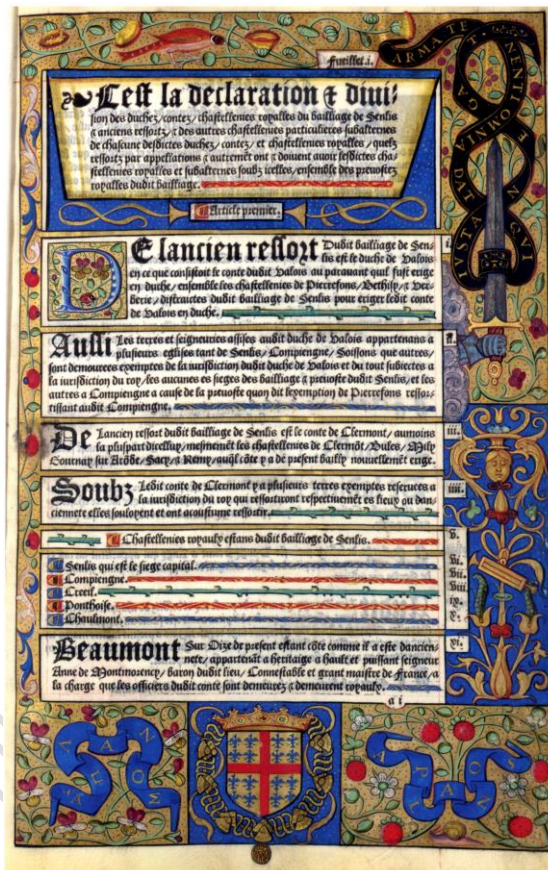 fueillet.i.
ARMA TENENTI OMNIA DAT QVI IVSTA NEGAT
Cest la declaration & diui-
sion des duchez, contez, chastellenies royalles du bailliage de Senlis
& anciens ressortz, & des autres chastellenies particulieres subalternes
de chascune desdictes duchez, contez, et chastellenies royalles, quelz
ressortz par appellations & autremẽt ont & doiuent auoir lesdictes cha-
stellenies royalles et subalternes soubz icelles, ensemble des preuostez
royalles dudit bailliage.
Article premier.
DE lancien ressort Dudit bailliage de Sen-
lis est le duche de Valois
en ce que consistoit le conte dudit Valois au parauant quil fust erige
en duche, ensemble les chastellenies de Pierrefons, Bethisy, & Ver-
berie, distraictes dudit bailliage de Senlis pour eriger ledit conte
de Valois en duche.
i.
Aussi Les terres et seigneuries assises audit duche de Valois appartenans a
plusieurs eglises tant de Senlis, Compiengne, Soissons que autres,
sont demourees exemptes de la iurisdiction dudit duche de Valois et du tout subiectes a
la iurisdiction du roy, les aucunes es sieges des bailliage & preuoste dudit Senlis, et les
autres a Compiengne a cause de la preuoste quon dit lexemption de Pierrefons ressor-
tissant audit Compiengne.
ii.
De Lancien ressort dudit bailliage de Senlis est le conte de Clermont, aumoins
la pluspart dicelluy, mesmemẽt les chastellenies de Clermõt, Bules, Milly
Gournay sur Arõde, Sacy, & Remy, auql cõte y a de present bailly nouuellemẽt erige.
iii.
Soubz Ledit conte de Clermont y a plusieurs terres exemptes reseruees a
la iurisdiction du roy qui ressortiront respectiuemẽt es lieux ou dan-
ciennete elles souloyent et ont acoustume ressortir.
iiii.
Chastellenies royaulx estans dudit bailliage de Senlis.
v.
Senlis qui est le siege capital.
vi.
Compiengne.
vii.
Creeil.
viii.
Ponthoise.
ix.
Chaulmont.
x.
Beaumont Sur Oize de present estant cõte comme il a este dancien-
nete, appartenãt a heritaige a hault et puissant seigneur
Anne de Montmorency, baron dudit lieu, Connestable et grant maistre de France, a
la charge que les officiers dudit conte sont demeurez & demeurent royaulx.
xi.
a i
APLANOS